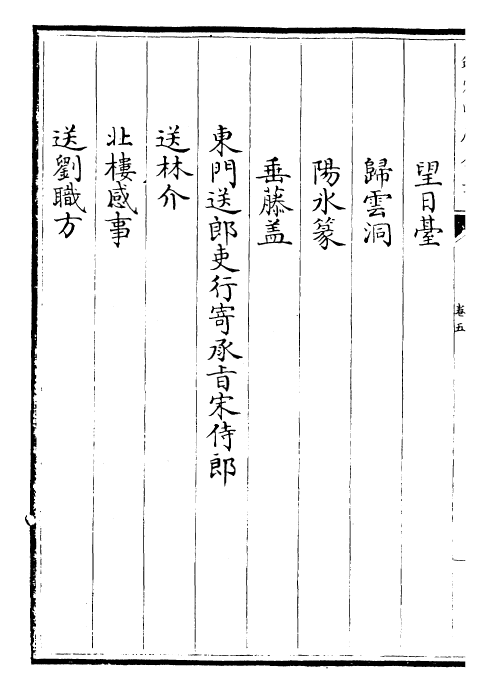 望日臺
歸雲洞
陽氷篆
垂藤盖
東門送郎吏行寄承旨宋侍郎
送林介
北樓感事
送劉職方
卷五